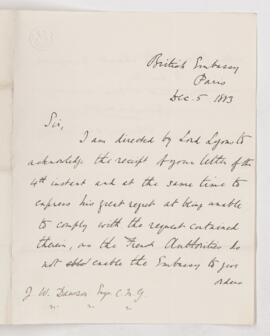 British Embassy
Paris
Dec. 5 1883
Sir,
I am directed by Lord Lyons to
acknowledge the receipt of your letter of the
4th instant and at the same time to
express his great regret at being unable
to comply with the request contained
therein, as the French Authorities do
not enable the Embassy to give
orders
J. W. Dawson Esqre C.M.G.
" " "